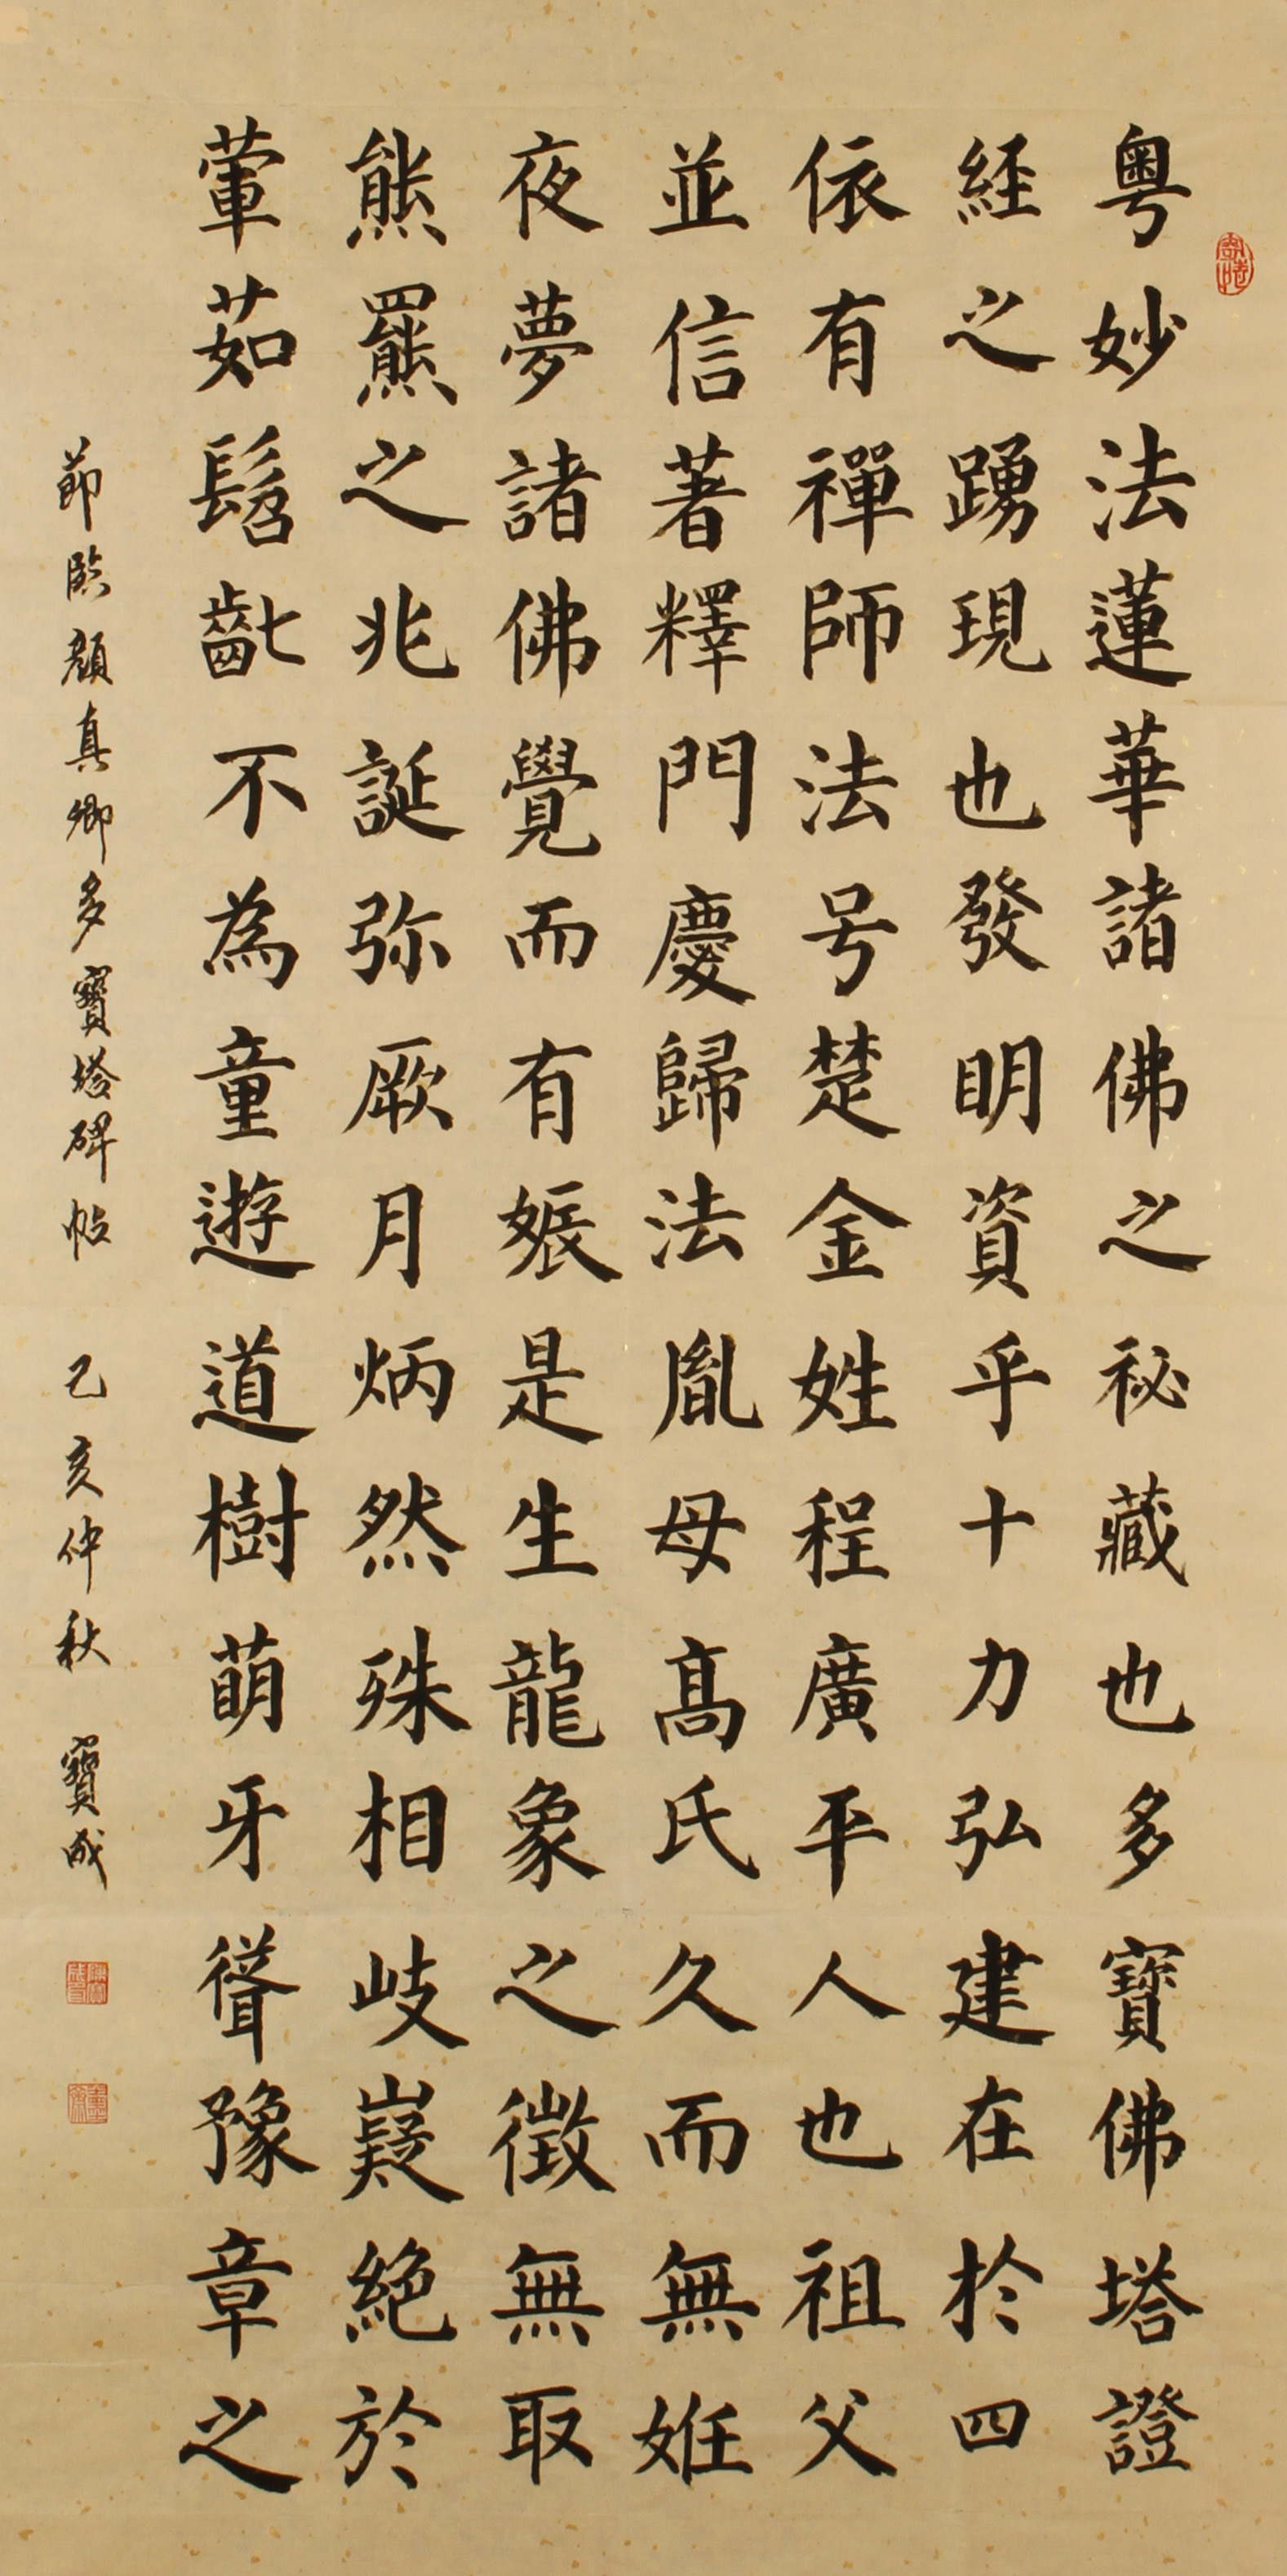 粤妙法蓮華諸佛之祕藏也多寶佛塔證
経之踴現也發明資乎十力弘建在扵四
依有禪師法号楚金姓程廣平人也祖父
並信著釋門慶歸法胤母高氏久而無姙
夜夢諸佛覺而有娠是生龍象之徵無取
熊羆之兆誕弥厥月炳然殊相岐嶷絶於
葷茹髫齔不為童遊道樹萌牙聳豫章之
節臨顏真卿多寶塔碑帖 己亥仲秋 寶成